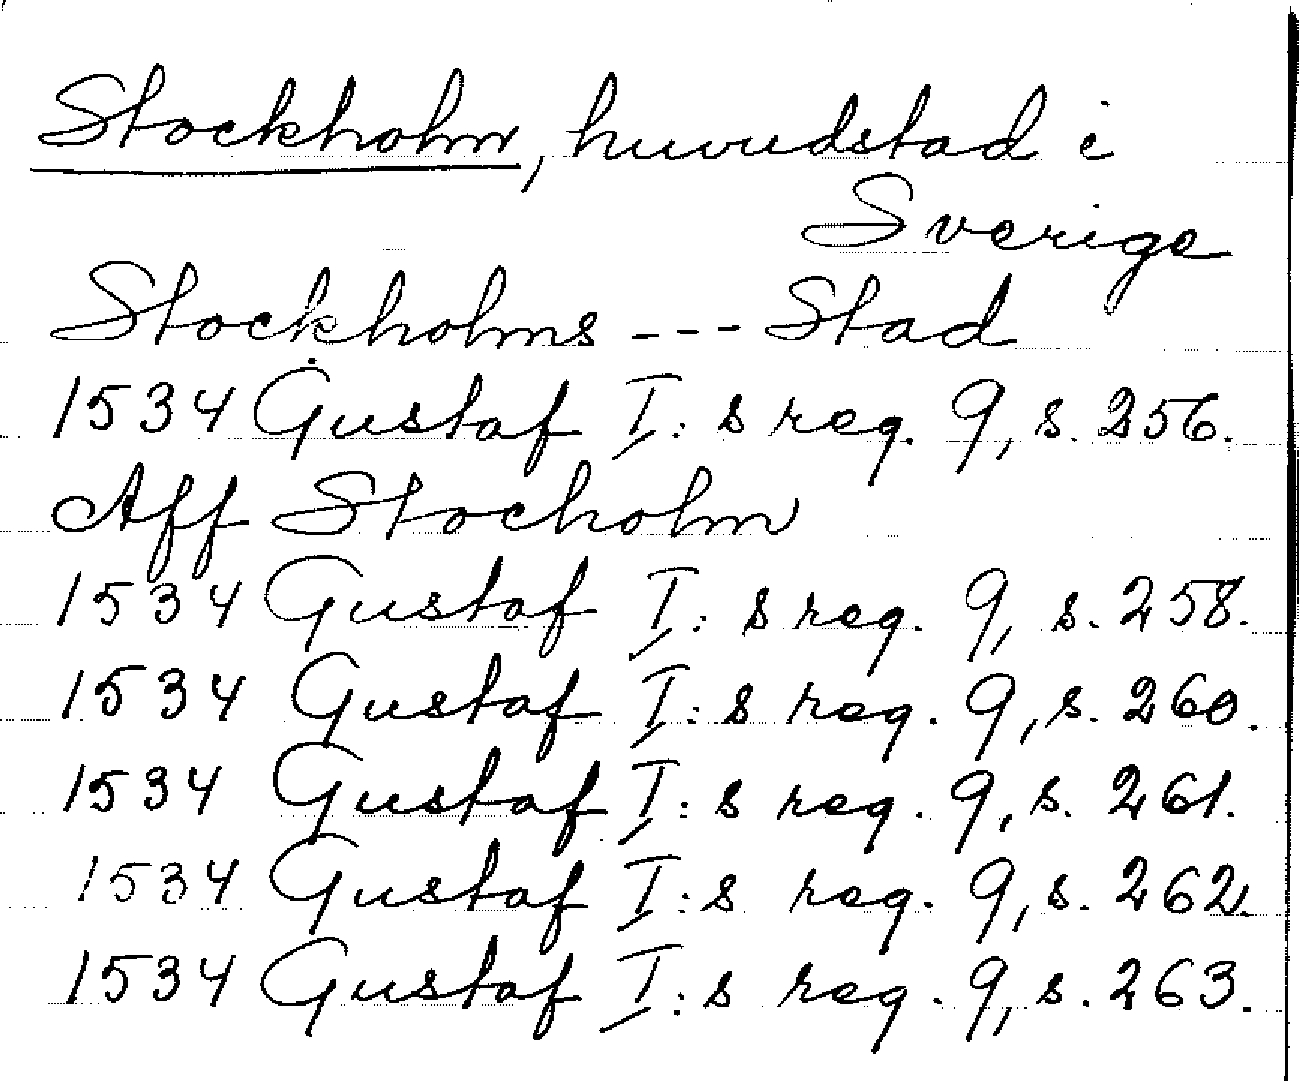 Stockholm, huvudstad i
Sverige
Stockholms --- Stad
1534 Gustaf I:s reg. 9, s. 256.
Aff Stocholm
1534 Gustaf I:s reg. 9, s. 258.
1534 Gustaf I:s reg. 9, s. 260.
1534 Gustaf I:s reg. 9, s. 261.
1534 Gustaf I:s reg. 9, s. 262.
1534 Gustaf I:s reg. 9, s. 263.